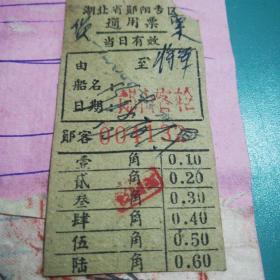 湖北省郧阳专区
通用票
当日有效
由 至 将军
船名:
日期:
郧客 004132
壹 角 0.10
贰 角 0.20
叁 角 0.30
肆 角 0.40
伍 角 0.50
陆 角 0.60